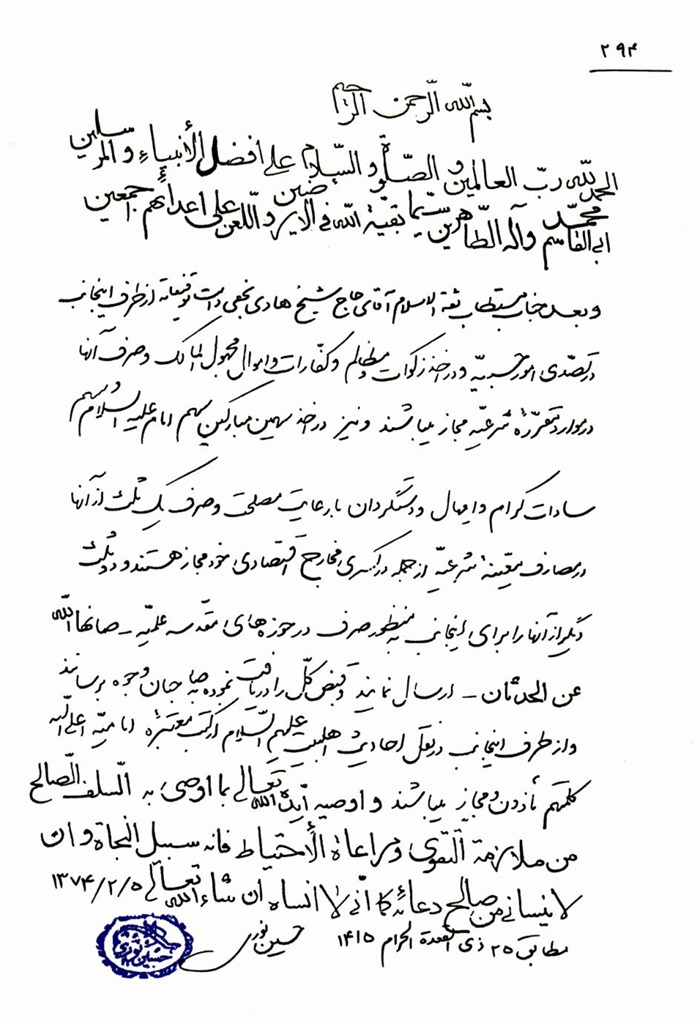 ۲۹۴
بسم الله الرحمن الرحیم
الحمد لله رب العالمین و الصلوة و السلام علی افضل الأنبیاء و المرسلین
ابی القاسم محمّد وآله الطّاهرین سیّما بقیّة الله فی الارضین واللّعن علی اعدائهم اجمعین
و بعد جناب مستطاب ثقة الاسلام آقای حاج شیخ هادی نجفی دامت توفیقاته از طرف اینجانب
در تصدّی امور حسبیّه و در اخذ زکوات و مظالم و کفّارات و اموال مجهول المالک و صرف آنها
در موارد مقرّرهٔ شرعیّه مجاز میباشند و نیز در اخذ سهمین مبارکین سهم امام علیه السلام و سهم
سادات کرام و ایصال و دستگردان با رعایت مصلحت و صرف یک ثلث از آنها
در مصارف معیّنهٔ شرعیّه از جمله در کسری مخارج اقتصادی خود مجاز هستند و دو ثلث
دیگر از آنها را برای اینجانب بمنظور صرف در حوزه های مقدسه علمیّه ـ صانها الله
عن الحدثان ـ ارسال نمایند و قبض کلّ را دریافت نموده به صاحبان وجوه برسانند
و از طرف اینجانب در نقل احادیث اهلبیت علیهم السّلام از کتب معتبرهٔ امامیّه اعلی الله
کلمتهم مأذون و مجاز میباشند و اوصیه ایّده الله تعالی بما اوصی به السلف الصّالح
من ملازمة التقوی و مراعاة الأحتیاط فانه سبیل النجاة و ان
لا ینسانی من صالح دعائه کما أنّی لا انساه ان شاء الله تعالی ۱۳۷۴/۲/۵
مطابق ۲۵ ذی القعدة الحرام ۱۴۱۵
حسین نوری
حسین نوری